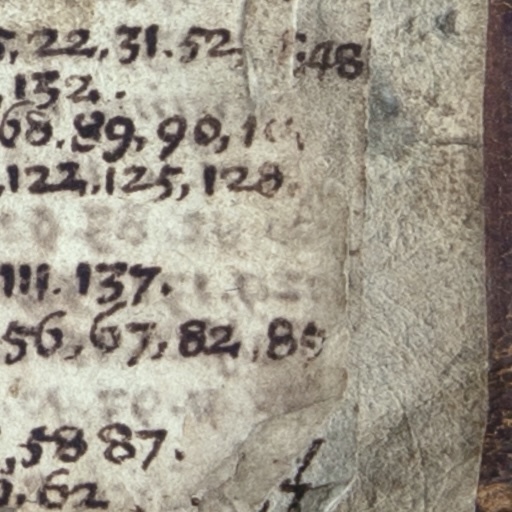 22, 31. 52, :48
, 132.
68. 89, 90, 10
, 122, 125, 128.
111. 137.
56, 67, 82, 86
, 58 87.
, 62